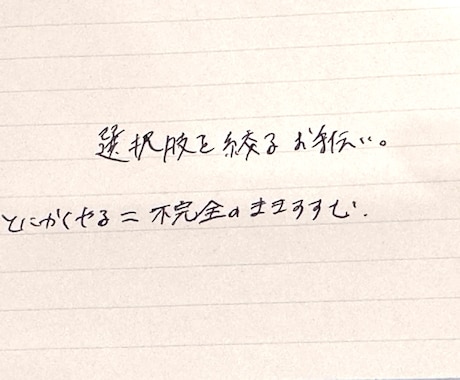 選択肢を絞るお手伝い。
とにかくやる＝不完全のまますすむ.